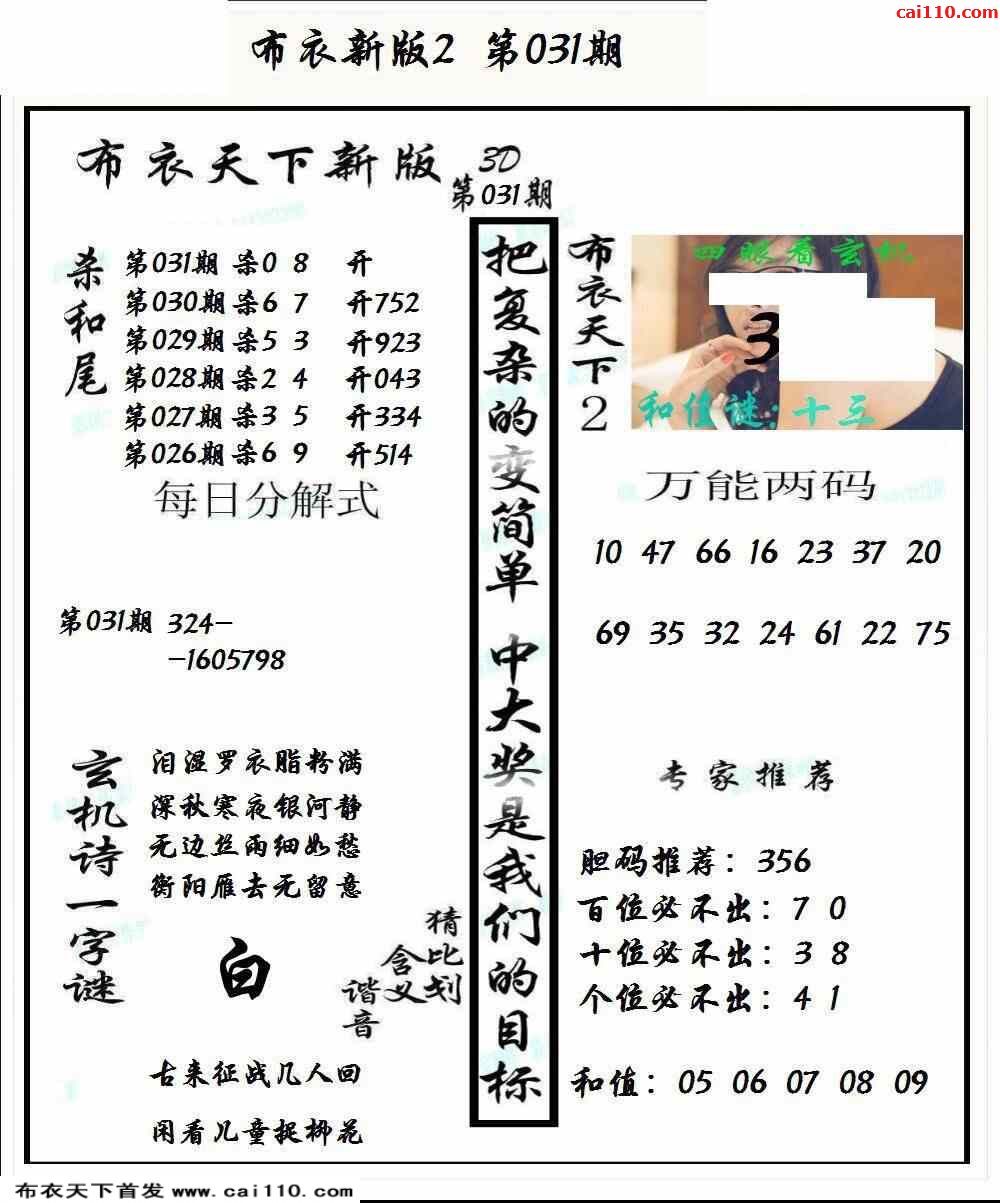 cai110.com
布衣新版2 第031期
布衣天下新版 3D
第031期
杀和尾
第031期 杀0 8 开
第030期 杀6 7 开752
第029期 杀5 3 开923
第028期 杀2 4 开043
第027期 杀3 5 开334
第026期 杀6 9 开514
每日分解式
第031期 324-
-1605798
玄机诗一字谜
泪湿罗衣脂粉满
深秋寒夜银河静
无边丝雨细如愁
衡阳雁去无留意
白
猜比划
含义
谐音
古来征战几人回
闲看儿童捉柳花
把复杂的变简单 中大奖是我们的目标
布衣天下2
四眼看玄机
3
和值谜:十三
万能两码
10 47 66 16 23 37 20
69 35 32 24 61 22 75
专家推荐
胆码推荐：356
百位必不出：7 0
十位必不出：3 8
个位必不出：4 1
和值：05 06 07 08 09
布衣天下首发 www.cai110.com